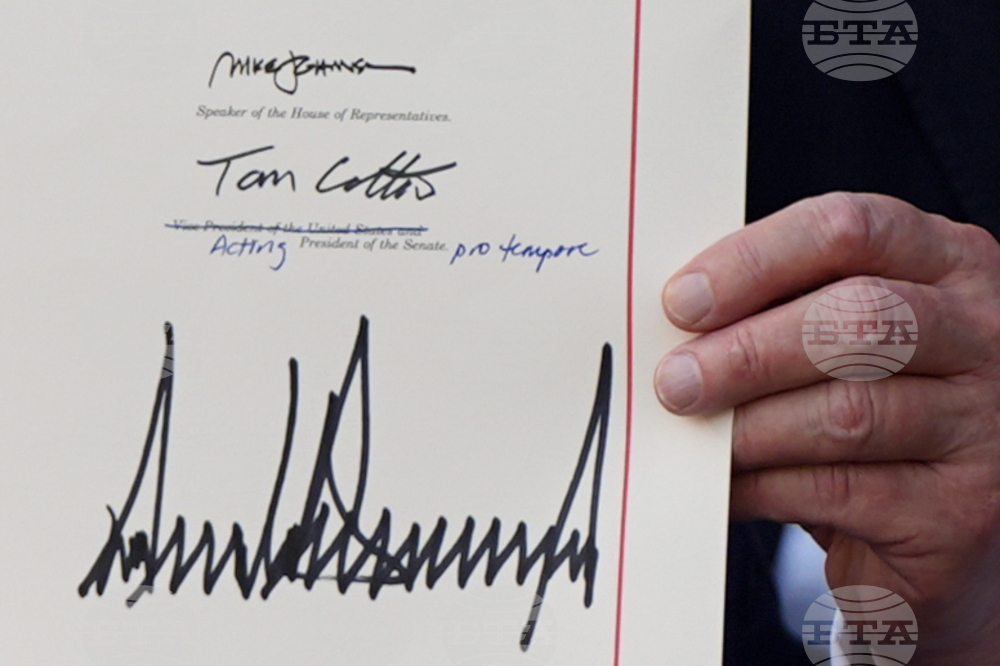 БТА
Mike Johnson
Speaker of the House of Representatives.
Tom Cotton
Vice President of the United States and
Acting President of the Senate. pro tempore
БТА
БТА